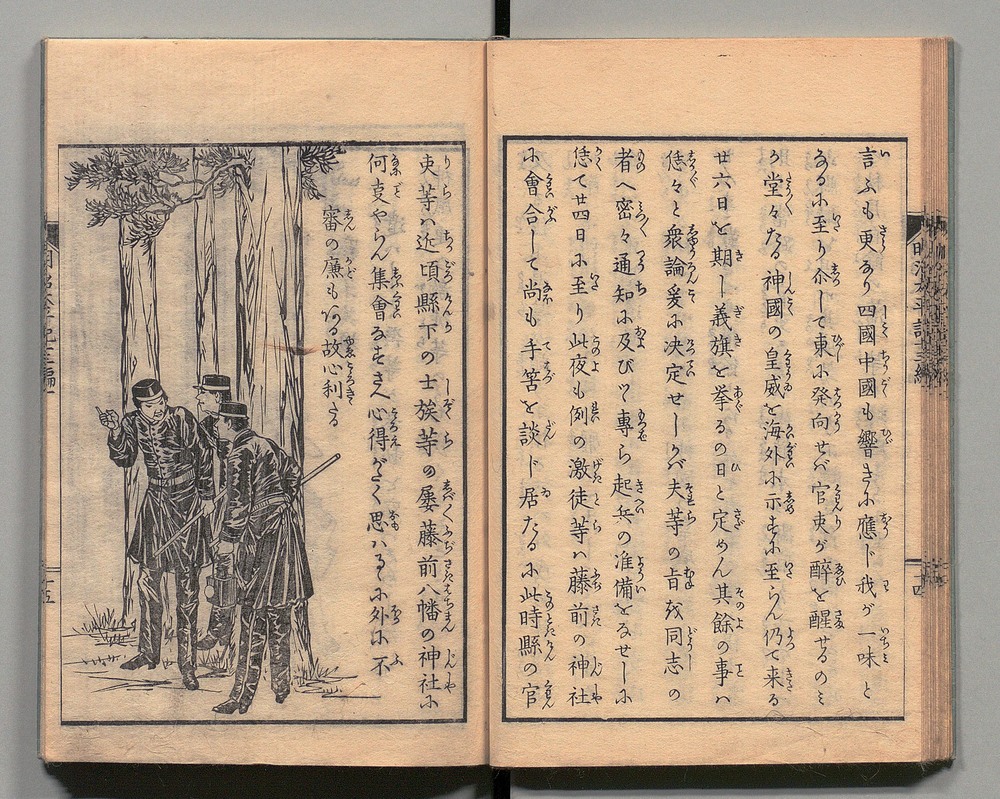 言ふも更なり四國中國も響きに應じ我が一味と
なるに至り尒して東に発向せバ官吏が醉を醒せるのミ
か堂々たる神國の皇威を海外に示すに至らん仍て来る
廿六日を期し義旗を挙るの日と定めん其餘の事ハ
恁々と衆論爰に决定せしかバ夫等の旨を同志の
者へ密々通知に及びツ專ら起兵の准備をなせしに
恁て廿四日に至り此夜も例の激徒等ハ藤前の神社
に會合して尚も手筈を談じ居たるに此時縣の官
吏等ハ近頃縣下の士族等の屡藤前八幡の神社に
何事やらん集會なすさへ心得がたく思ハるゝに外に不
審の廉もある故心利たる
明治太平記十三編
十四
十五